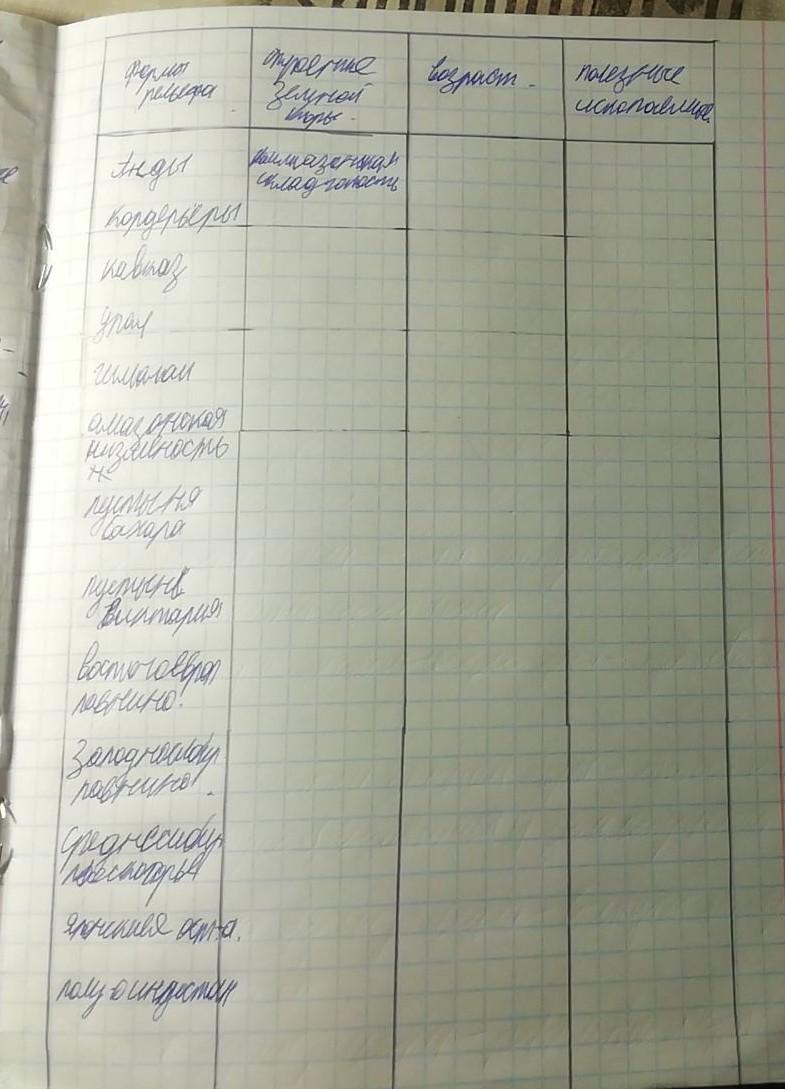 Формы
рельефа
строение
Земной
коры.
возраст.
полезные
ископаемые.
Анды
кайназойская
складчатость
Кордерьеры
Кавказ
Урал
гималаи
амазонская
низменность
пустыня
Сахара
пустыня
Виктория
восточоевроп
равнина.
Западносибир
равнина.
среднесибир
плоскогорья
японские остр-а.
полу-о индостан